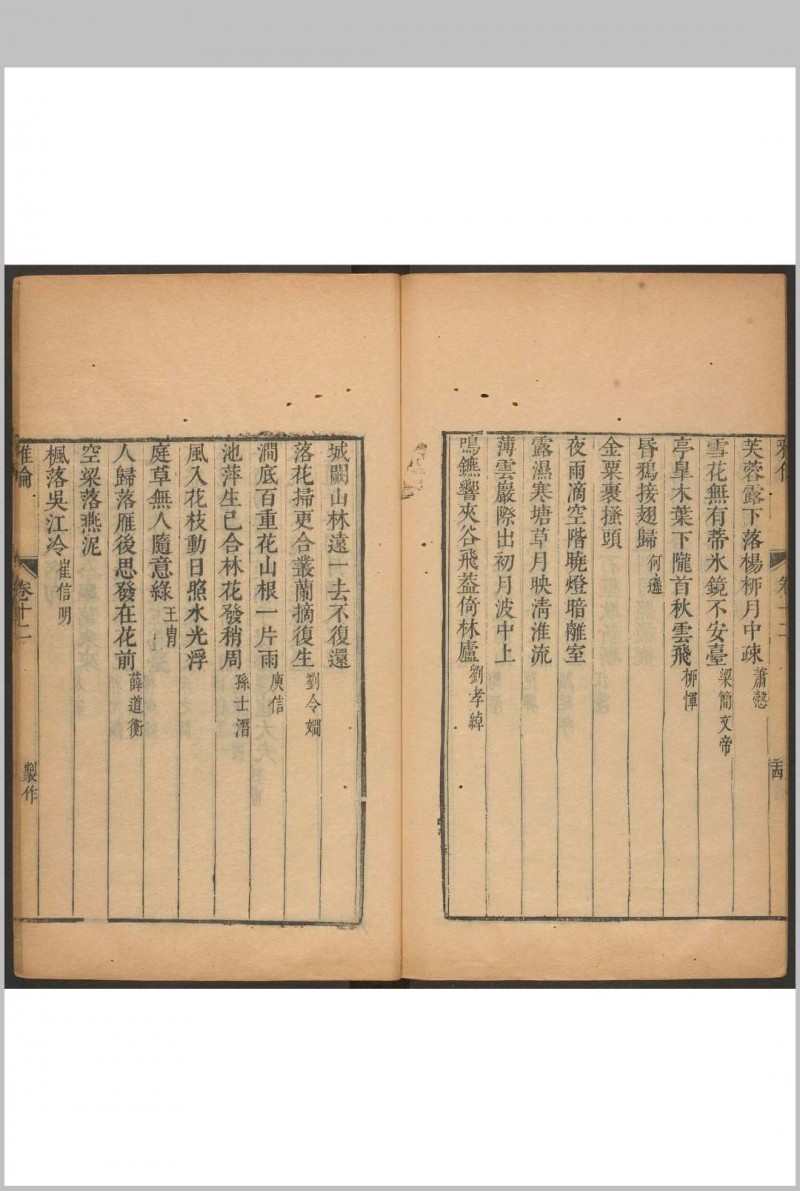 卷十二
芙蓉露下落楊柳月中疎 蕭慤
雪花無有蒂氷鏡不安臺 梁簡文帝
亭臯木葉下隴首秋雲飛 柳惲
昏鴉接翅歸 何遜
金粟裹搔頭
夜雨滴空階曉燈暗離室
露濕寒塘草月映淸淮流
薄雲巖際出初月波中上
鳴鑣響夾谷飛蓋倚林廬 劉孝綽
城闕山林遠一去不復還
落花掃更合叢蘭摘復生 劉令嫺
澗底百重花山根一片雨 庾信
池萍生已合林花發稍周 孫士潛
風入花枝動日照水光浮
庭草無人隨意綠 王胄
人歸落雁後思發在花前 薛道衡
空梁落燕泥
楓落吳江冷 崔信明
雅倫 卷十二 製作